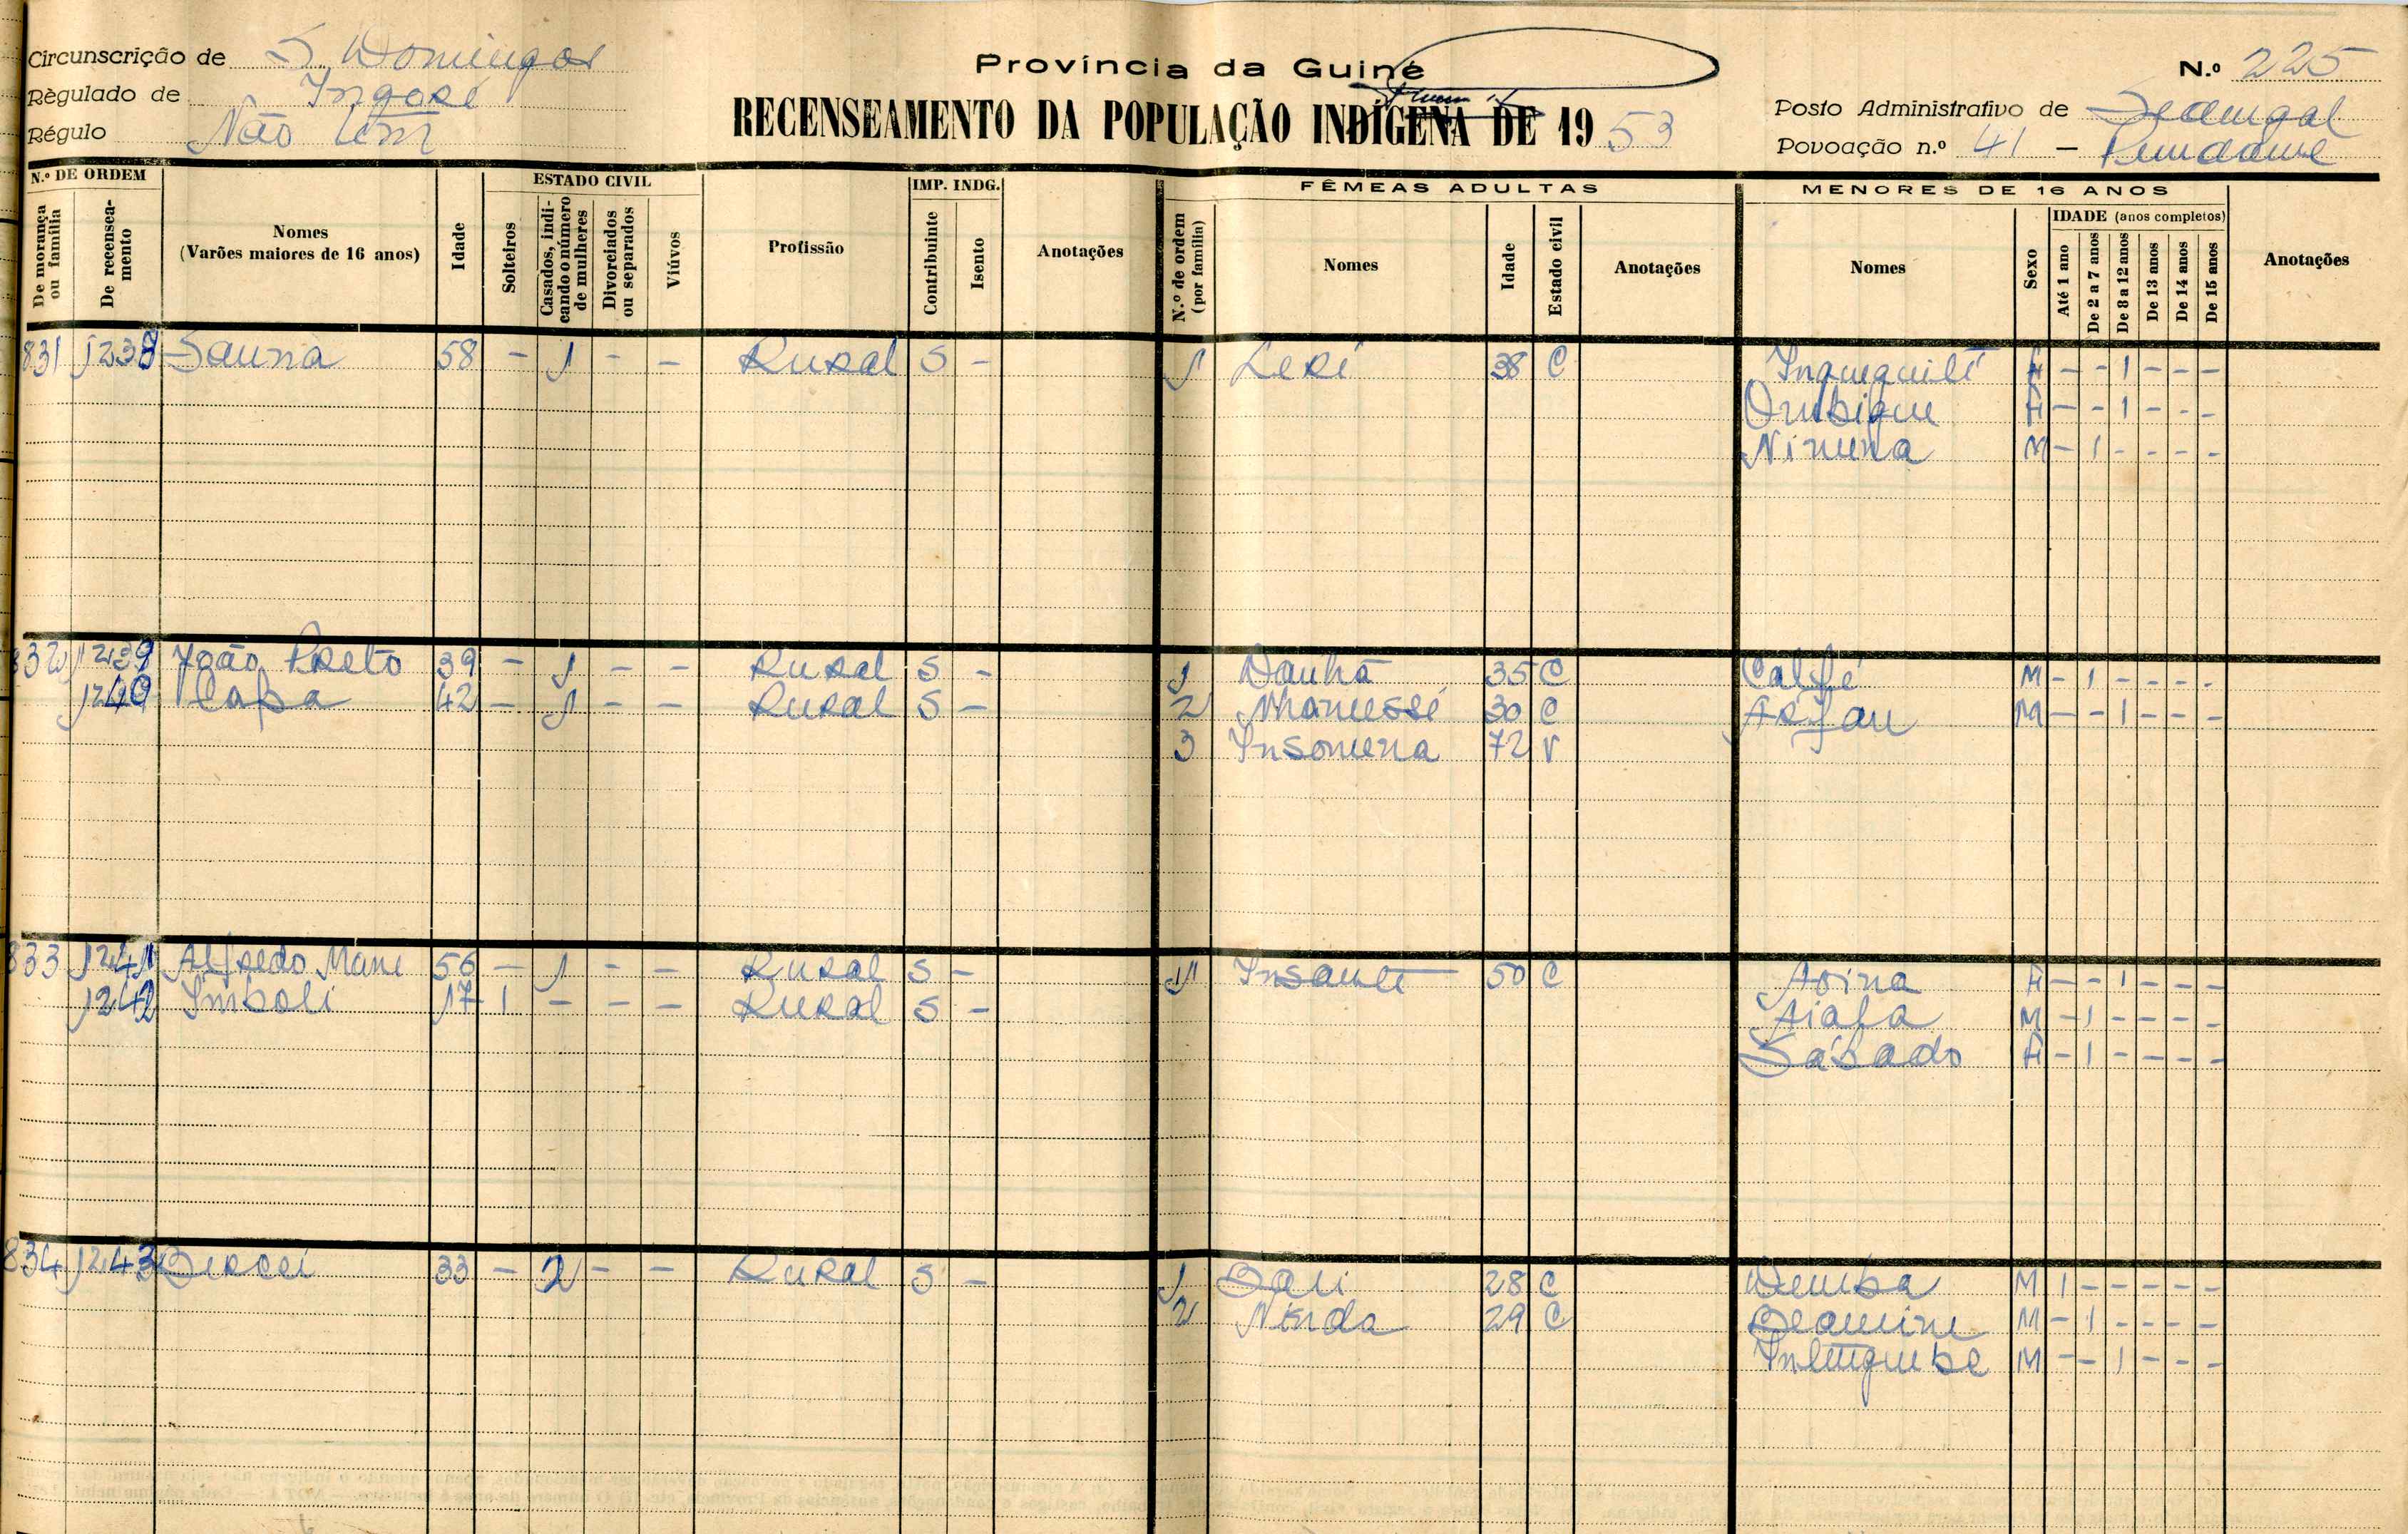 Circunscrição de S. Domingos
Règulado de Ingoré
Régulo Não tem
Província da Guiné
RECENSEAMENTO DA POPULAÇÃO INDÍGENA DE 1953
N.º 225
Posto Administrativo de
Povoação n.º 41 -
N.º DE ORDEM
De morança ou família
De recenseamento
Nomes
(Varões maiores de 16 anos)
Idade
ESTADO CIVIL
Solteiros
Casados, indicando o número de mulheres
Divorciados ou separados
Viúvos
Profissão
IMP. INDG.
Contribuinte
Isento
Anotações
FÊMEAS ADULTAS
N.º de ordem (por família)
Nomes
Idade
Estado civil
Anotações
MENORES DE 16 ANOS
Nomes
Sexo
IDADE (anos completos)
Até 1 ano
De 2 a 7 anos
De 8 a 12 anos
De 13 anos
De 14 anos
De 15 anos
Anotações
831 1238 Sauna 58 - 1 - - Rural S - 1 Leré 38 C F - - 1 - - -
F - - 1 - - -
M - 1 - - - -
832 1239 João Preto 39 - 1 - - Rural S - 1 Danhã 35 C M - 1 - - - -
1240 Capa 42 - 1 - - Rural S - 2 30 C M - - 1 - - -
3 Insomena 72 V
833 1241 Alfredo Mane 56 - 1 - - Rural S - 1 50 C F - - 1 - - -
1242 Imboli 17 1 - - - Rural S - M - 1 - - - -
Sábado F - 1 - - - -
834 1243 33 - 2 - - Rural S - 1 28 C Demba M 1 - - - - -
2 29 C M - 1 - - - -
M - - 1 - - -